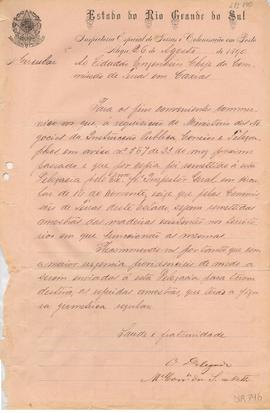 Estado do Rio Grande do Sul
Inspectoria Especial de Terras e Colonisação em Porto
Alegre 26 de Agosto de 1890
Circular
Ao Cidadão Engenheiro Chefe da Com
missão de Terras em Caxias
Para os fins convenientes commu
nico vos que, a requisição do Ministerio dos Ne
gocios da Instrucção Publica, Correios e Telegra
phos em aviso nº 867 de 23 de
e que por copia foi remettido a esta
Delegacia pelo Inspector Geral em
cular de 10 de exige que pelas Commis
sões de Terras deste Estado sejam remettidas
amostras das madeiras existentes nos territo
rios em que funccionão as mesmas.
Recommendo vos portanto que com
a maior urgencia providencieis de modo a
serem enviadas a esta Delegacia para terem
destino, as referidas amostras, que terão a figu
ra geometrica regular.
Saude e fraternidade
O Delegado